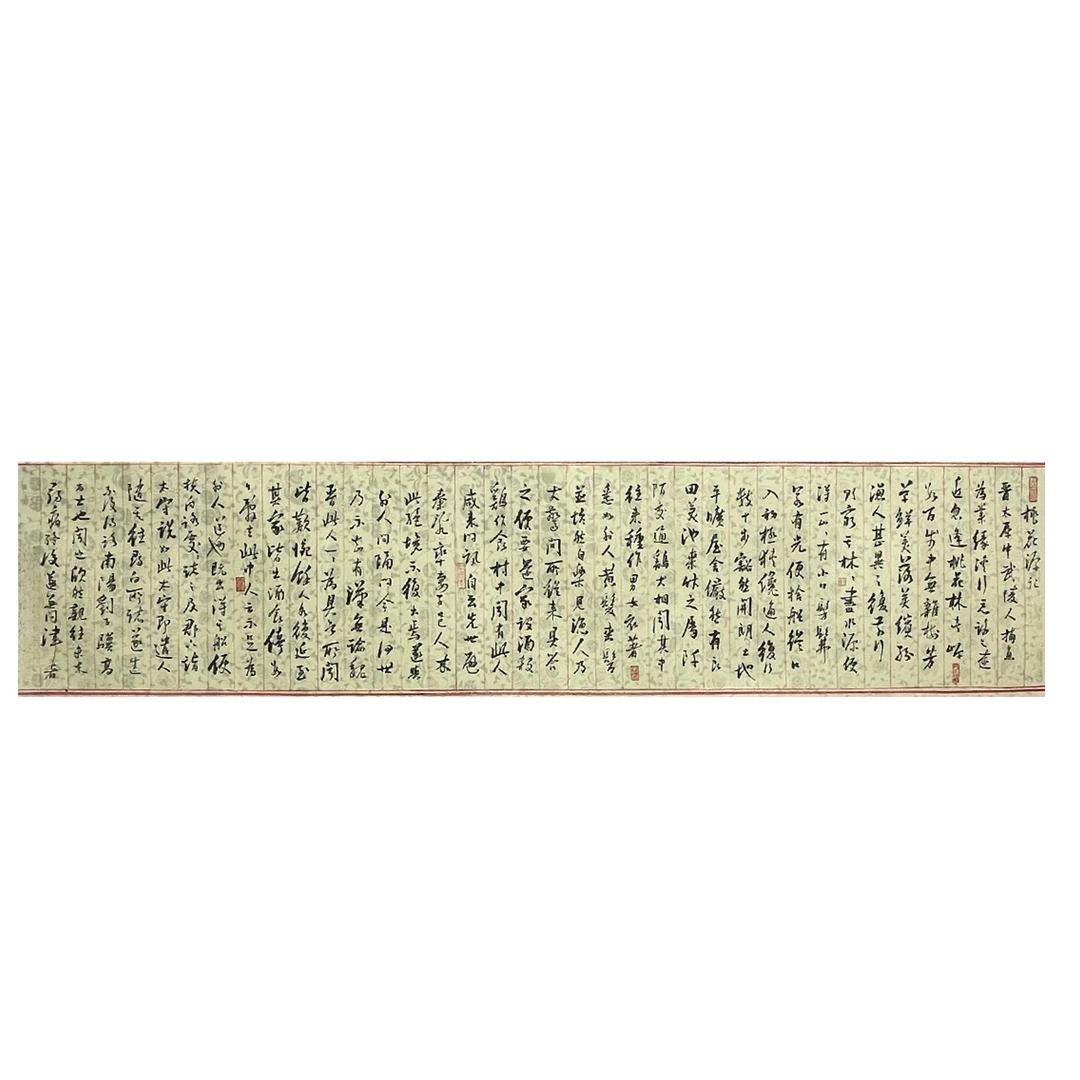 桃花源記
晋太原中武陵人捕魚
為業緣溪行忘路之遠
近忽逢桃花林夾岸
數百步中無雜樹芳
草鮮美落英繽紛
漁人甚異之復前行
欲窮其林林盡水源便
得一山山有小口髣髴
若有光便捨船從口
入初極狹纔通人復行
數十步豁然開朗土地
平曠屋舍儼然有良
田美池桑竹之屬阡
陌交通鷄犬相聞其中
往來種作男女衣著
悉如外人黄髮垂髫
並怡然自樂見漁人乃
大驚問所從來具答
之便要還家設酒殺
鷄作食村中聞有此人
咸來問訊自云先世避
秦亂率妻子邑人來
此絕境不復出焉遂與
外人間隔問今是何世
乃不知有漢無論魏
晋此人一一為具言所聞
皆歎惋餘人各復延至
其家皆出酒食停數
日辭去此中人云不足為
外人道也既出得其船便
扶向路處處誌之及郡下詣
太守說如此太守即遣人
隨其往尋向所誌遂迷
不復得路南陽劉子驥高
尚士也聞之欣然親往未果
尋病終後遂無問津者